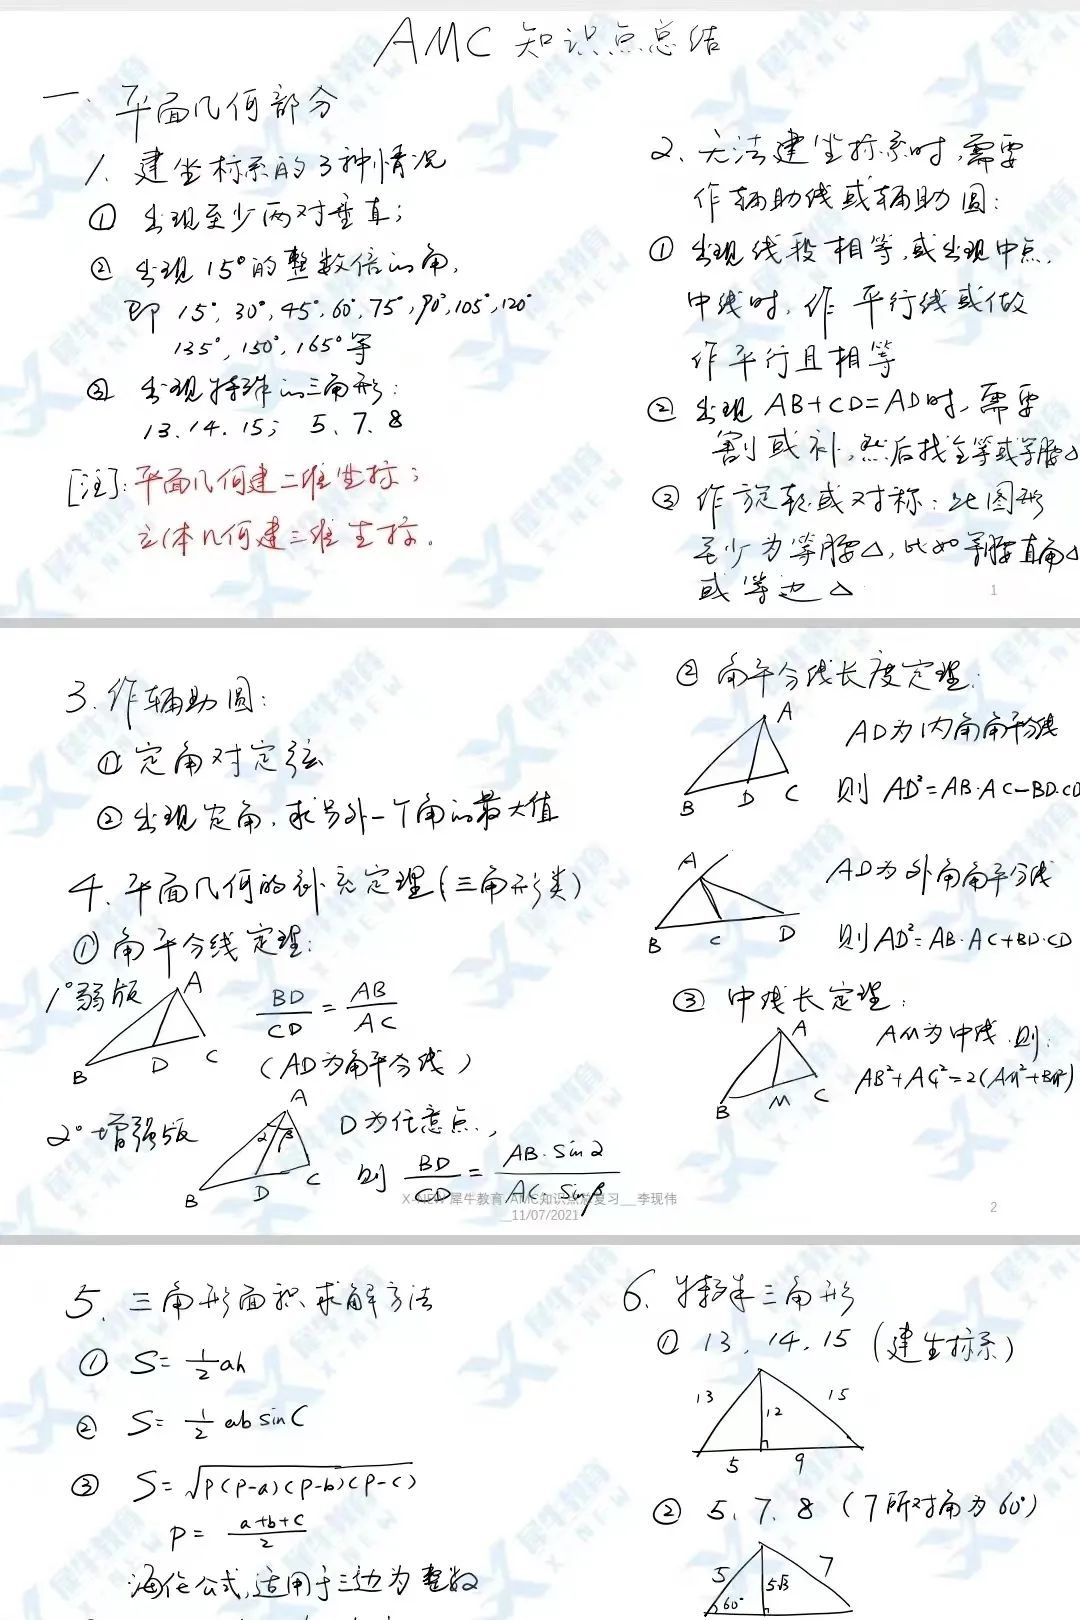 AMC 知识点总结
一、平面几何部分
1、建坐标系的3种情况
① 出现至少两对垂直;
② 出现15°的整数倍的角,
即 15°, 30°, 45°, 60°, 75°, 90°, 105°, 120°
135°, 150°, 165°等
③ 出现特殊的三角形:
13. 14. 15; 5、7、8
[注]: 平面几何建二维坐标;
立体几何建三维坐标。
2、无法建坐标系时,需要
作辅助线或辅助圆:
① 出现线段相等,或出现中点,
中线时,作 平行线或做
作平行且相等
② 出现 AB+CD=AD时,需要
割或补,然后找全等或等腰△
③ 作旋转或对称:此图形
至少为等腰△,比如等腰直角△
或等边△
1
3. 作辅助圆:
① 定角对定弦
② 出现定角,求另外一个角的最大值
4、平面几何的补充定理(三角形类)
① 角平分线定理:
1° 弱版
A
B
D
C
BD/CD = AB/AC
(AD为角平分线)
2° 增强版
A
α β
B
D
C
D为任意点,
则 BD/CD = AB·Sinα/AC·Sinβ
② 角平分线长度定理:
A
B
D
C
AD为内角角平分线
则 AD²=AB·AC-BD·CD
A
B
C
D
AD为外角角平分线
则AD²=AB·AC+BD·CD
③ 中线长定理:
A
B
M
C
AM为中线,则:
AB²+AC²=2(AM²+BM²)
X-NEW 犀牛教育 AMC知识点总复习__李现伟
__11/07/2021
2
5、三角形面积求解方法
① S= 1/2 ah
② S= 1/2 ab sinC
③ S=√p(p-a)(p-b)(p-c)
p= a+b+c/2
海伦公式,适用于三边为整数
6、特殊三角形
① 13、14、15 (建坐标系)
13
12
15
5
9
② 5、7、8 (7所对角为60°)
5
5√3
7
60°